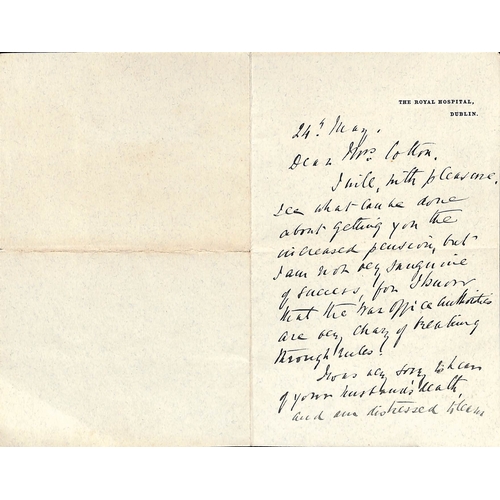 THE ROYAL HOSPITAL,
DUBLIN.
24th May.
Dear Mrs. Cotton.
I will, with pleasure,
see what can be done
about getting you the
increased pension, but
I am not very sanguine
of success, for I know
that the War Office Authorities
are very chary of breaking
through rules!
I was very sorry to hear
of your husband's death,
and am distressed to learn